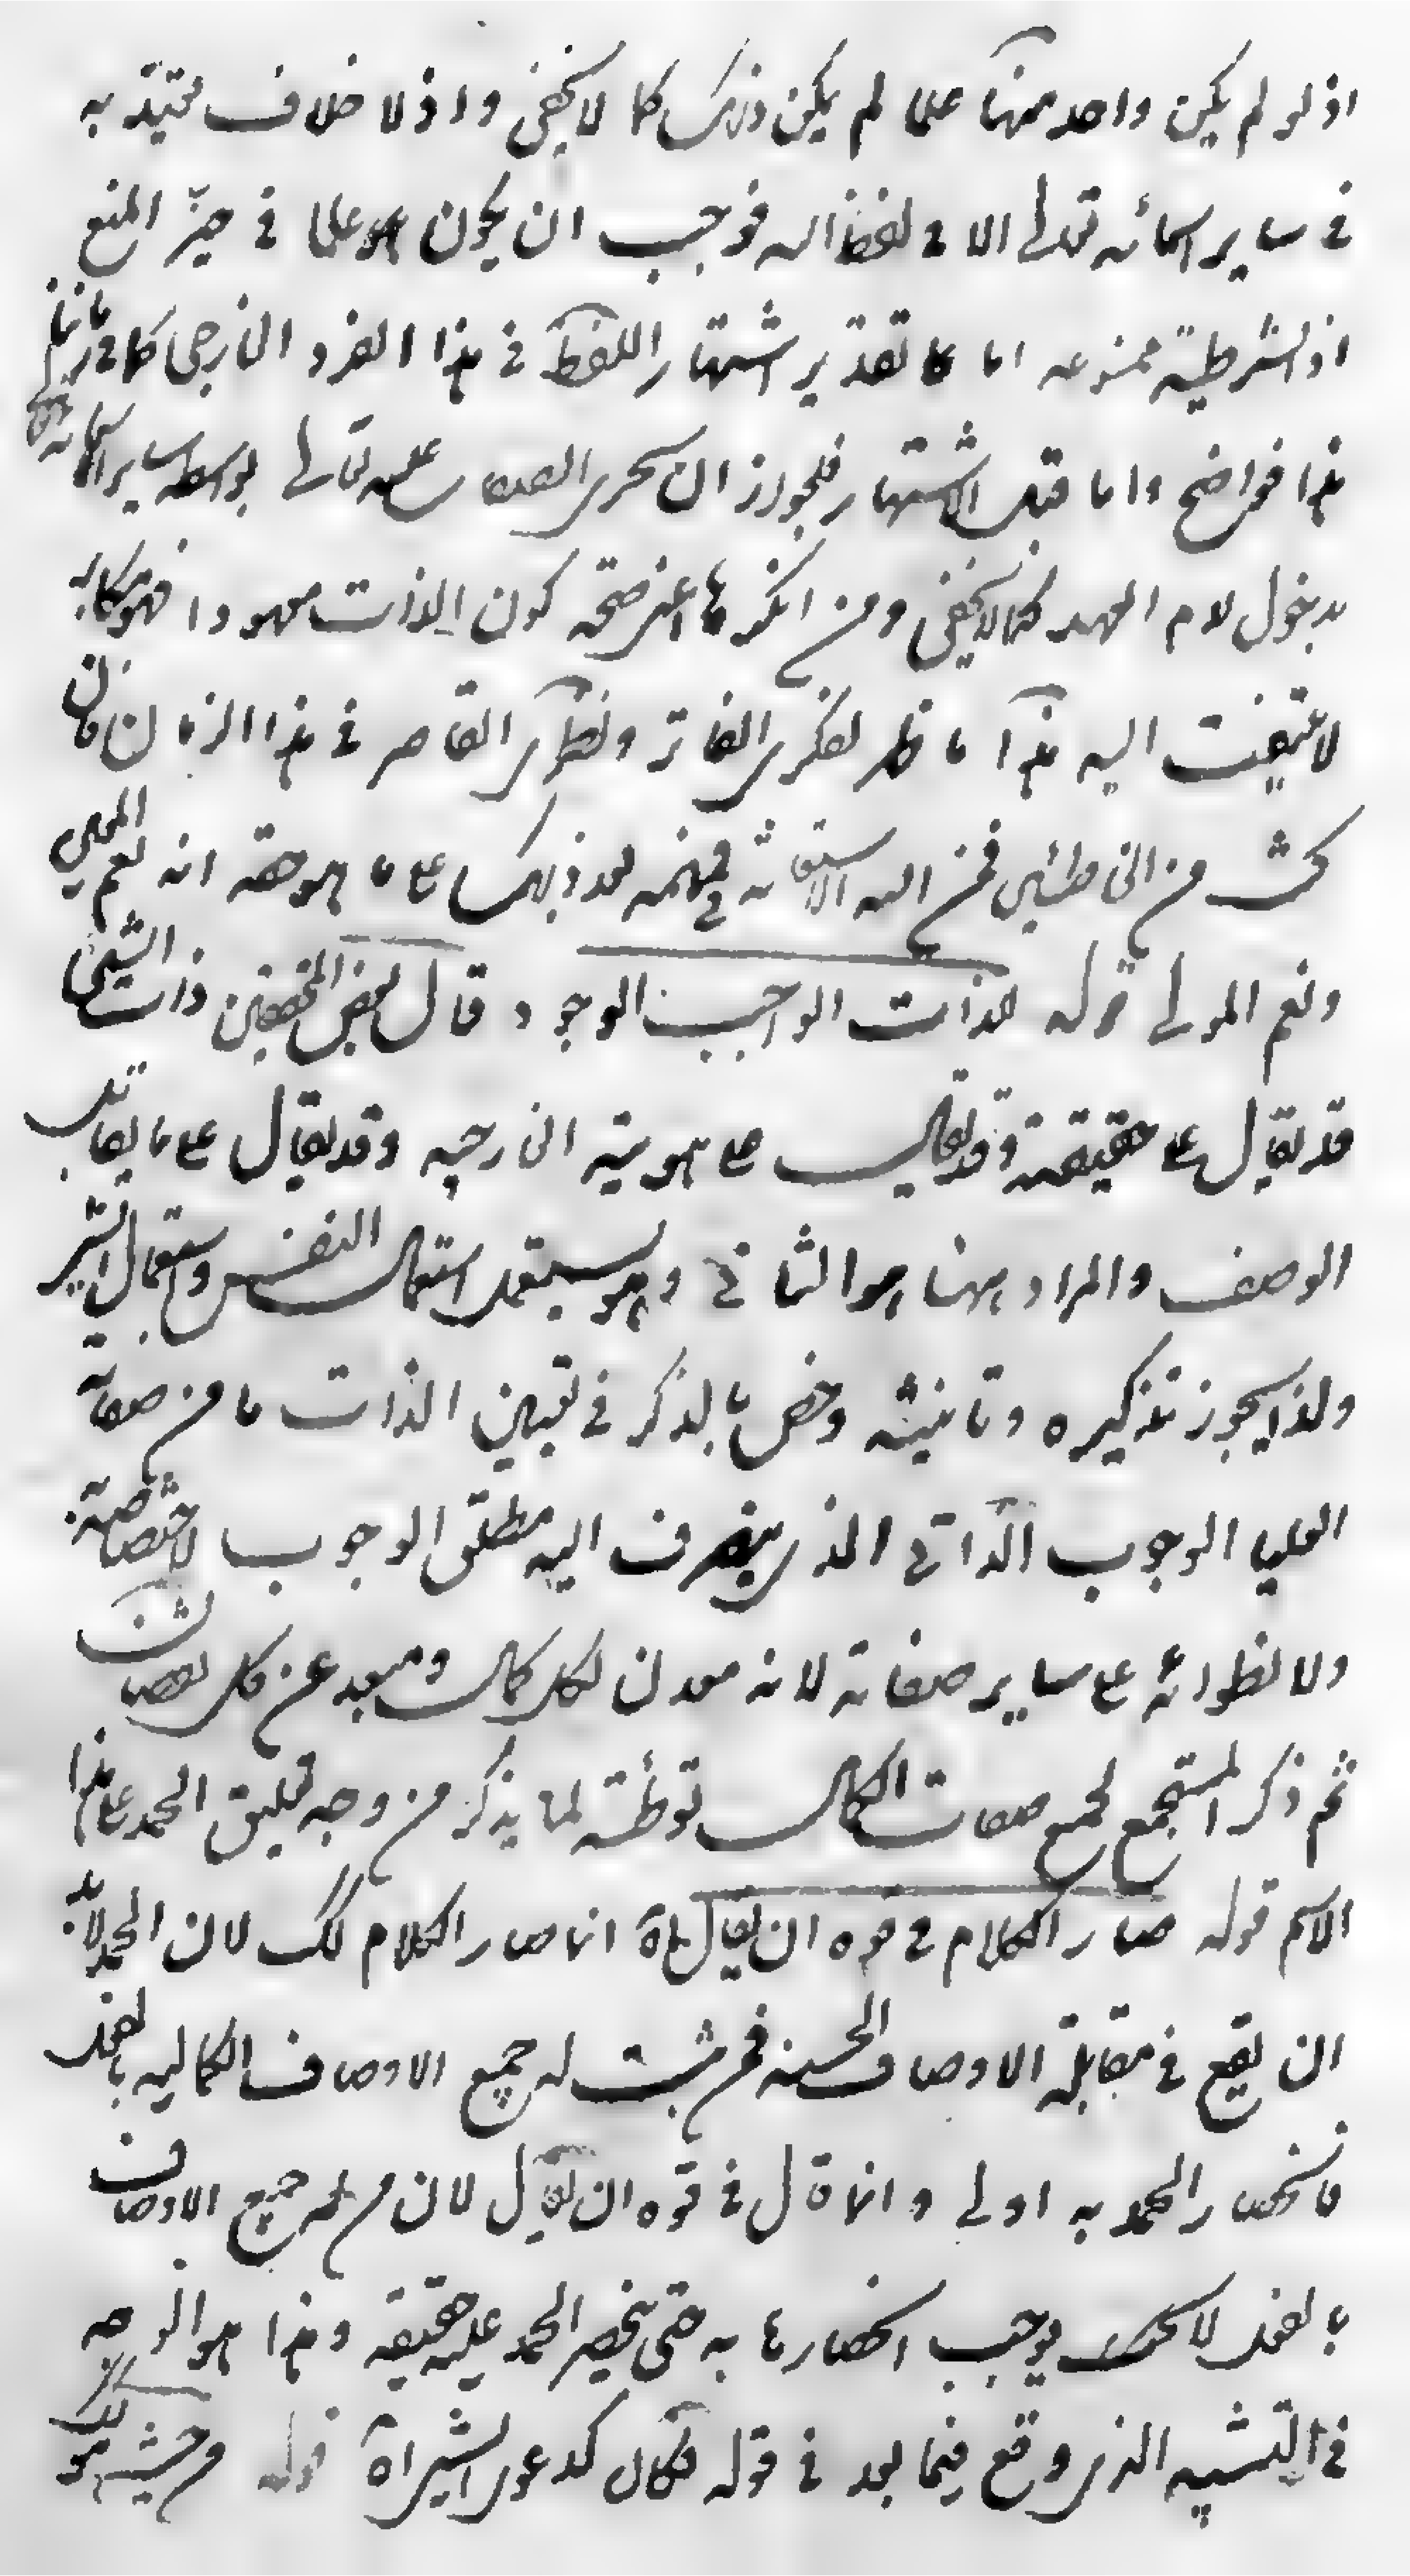 اذ لو لم يكن واحد منها علما لم يكن ذلك كما لا يخفى واذ لا خلاف يعتد به
فى ساير اسمائه تعالى الا فى لفظ الله فوجب ان يكون هو علما فى حيز المنع
اذ الشرطية ممنوعه اما على تقدير اشتهار اللفظ فى هذا الفرد الخارجى كما فى زماننا
هذا فواضح واما قبل الاشتهار فلجواز ان يجرى الصفات عليه تعالى بواسطه ساير اسمائه
بدخول لام العهد كما لا يخفى ومن انكر ها اعنى صحة كون الذات معهودا فهو مكابر
لا يلتفت اليه هذا ما ظهر لفكرى الفاتر ونظرى القاصر فى هذا الزمان فان
كنت من الخاطئين فمن الله الاستغاثة فى فهمه بعد ذلك على ما هو حقه انه نعم المعين
ونعم المولى قوله للذات الواجب الوجود قال بعض المحققين ذات الشئ
قد يقال على حقيقته وقد يقال على هويته الخارجيه وقد يقال على ما يقابل
الوصف والمراد ههنا هو الثانى وهو يستعمل استعمال النفس واستعمال الشئ
ولذا يجوز تذكيره وتانيثه وخص بالذكر فى تعيين الذات ما من صفاته
العليا الوجوب الذاتى الذى ينصرف اليه مطلق الوجوب لاختصاصه
ولانطوائه على ساير صفاته لانه معدن لكل كمال ومبعد عن كل نقصان
ثم ذكر المستجمع لجميع صفات الكمال توطئة لما يذكر من وجه تعليق الحمد على هذا
الاسم قوله صار الكلام فى قوه ان يقال اه انما صار الكلام كك لان الحمد لابد
ان يقع فى مقابلة الاوصاف الحسنه فمن ثبت له جميع الاوصاف الكماليه بالفعل
فانحصار الحمد به اولى وانما قال فى قوه ان يقال لان من له جميع الاوصاف
بالفعل لا يوجب انحصارها به حتى ينحصر الحمد عليه حقيقه وهذا هو الوجه
فى التشبيه الذى وقع فيما بعد فى قوله فكان كدعوى الشئ اه قوله من حيث هو كك